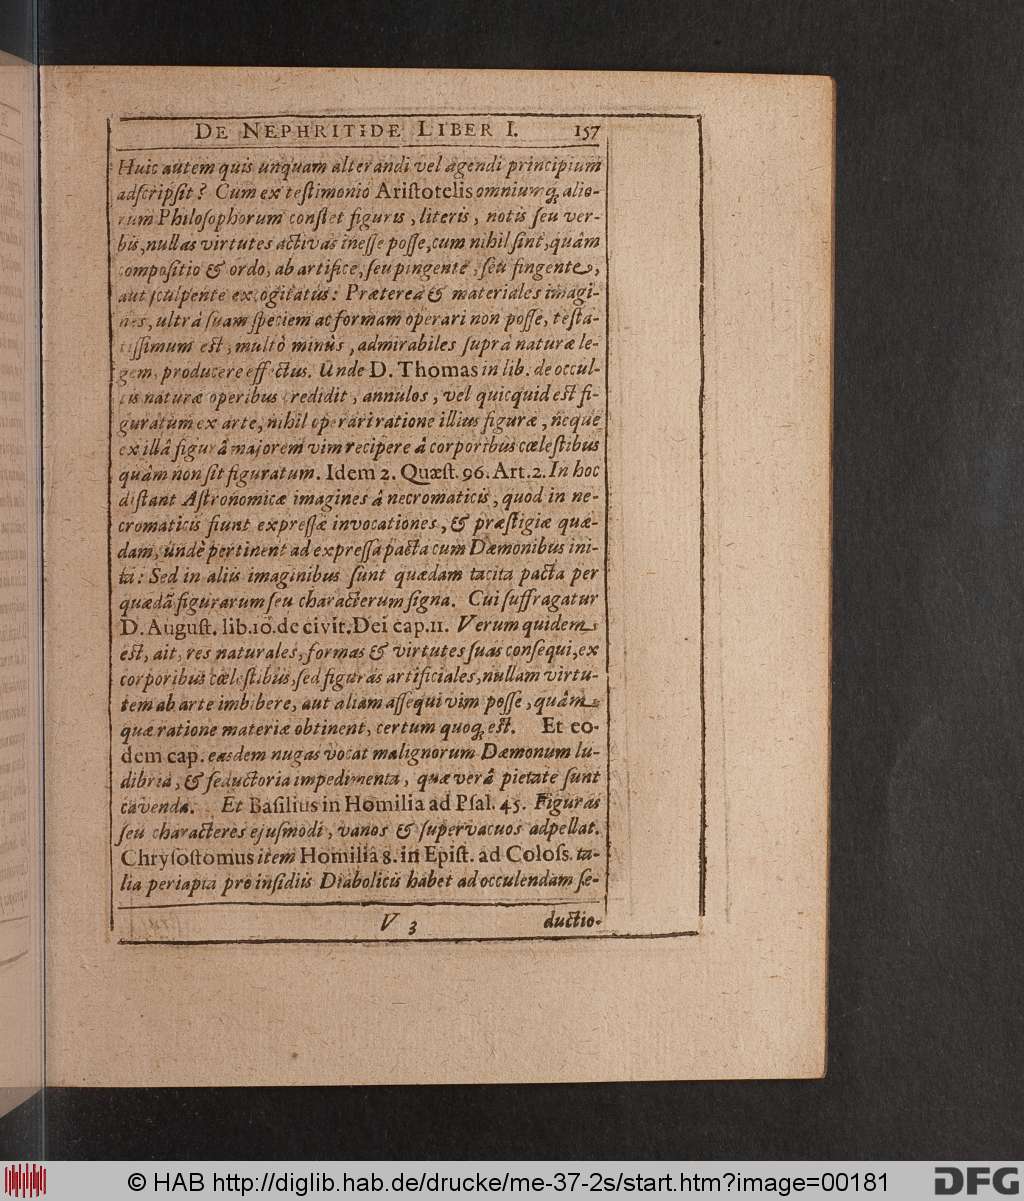 DE NEPHRITIDE LIBER I. 157
Huic autem quis unquam alterandi vel agendi principium
adscripsit? Cum ex testimonio Aristotelis omniumq; alio-
rum Philosophorum constet figuris, literis, notis seu ver-
bis, nullas virtutes activas inesse posse, cum nihil sint, quàm
compositio & ordo, ab artifice, seu pingente, seu fingente,
aut sculpente excogitatus: Præterea & materiales imagi-
nes, ultrà suam speciem ac formam operari non posse, testa-
tissimum est, multò minùs, admirabiles suprà naturæ le-
gem, producere effectus. Unde D. Thomas in lib. de occul-
tis naturæ operibus credidit, annulos, vel quicquid est fi-
guratum ex arte, nihil operari ratione illius figuræ, neque
ex illâ figurâ majorem vim recipere à corporibus cœlestibus
quàm non sit figuratum. Idem 2. Quæst. 96. Art. 2. In hoc
distant Astronomicæ imagines à necromaticis, quod in ne-
cromaticis fiunt expressæ invocationes, & præstigiæ quæ-
dam, undè pertinent ad expressa pacta cum Dæmonibus ini-
ta: Sed in aliis imaginibus sunt quædam tacita pacta per
quædã figurarum seu characterum signa. Cui suffragatur
D. August. lib. 10. de civit. Dei cap. 11. Verum quidem
est, ait, res naturales, formas & virtutes suas consequi, ex
corporibus cœlestibus, sed figuras artificiales, nullam virtu-
tem ab arte imbibere, aut aliam assequi vim posse, quàm
quæ ratione materiæ obtinent, certum quoq; est. Et eo-
dem cap. easdem nugas vocat malignorum Dæmonum lu-
dibria, & seductoria impedimenta, quæ verâ pietate sunt
cavenda. Et Basilius in Homilia ad Psal. 45. Figuras
seu characteres ejusmodi, vanos & supervacuos adpellat.
Chrysostomus item Homilia 8. in Epist. ad Coloss. ta-
lia periapta pro insidiis Diabolicis habet ad occulendam se-
V 3 ductio-
© HAB http://diglib.hab.de/drucke/me-37-2s/start.htm?image=00181
DFG